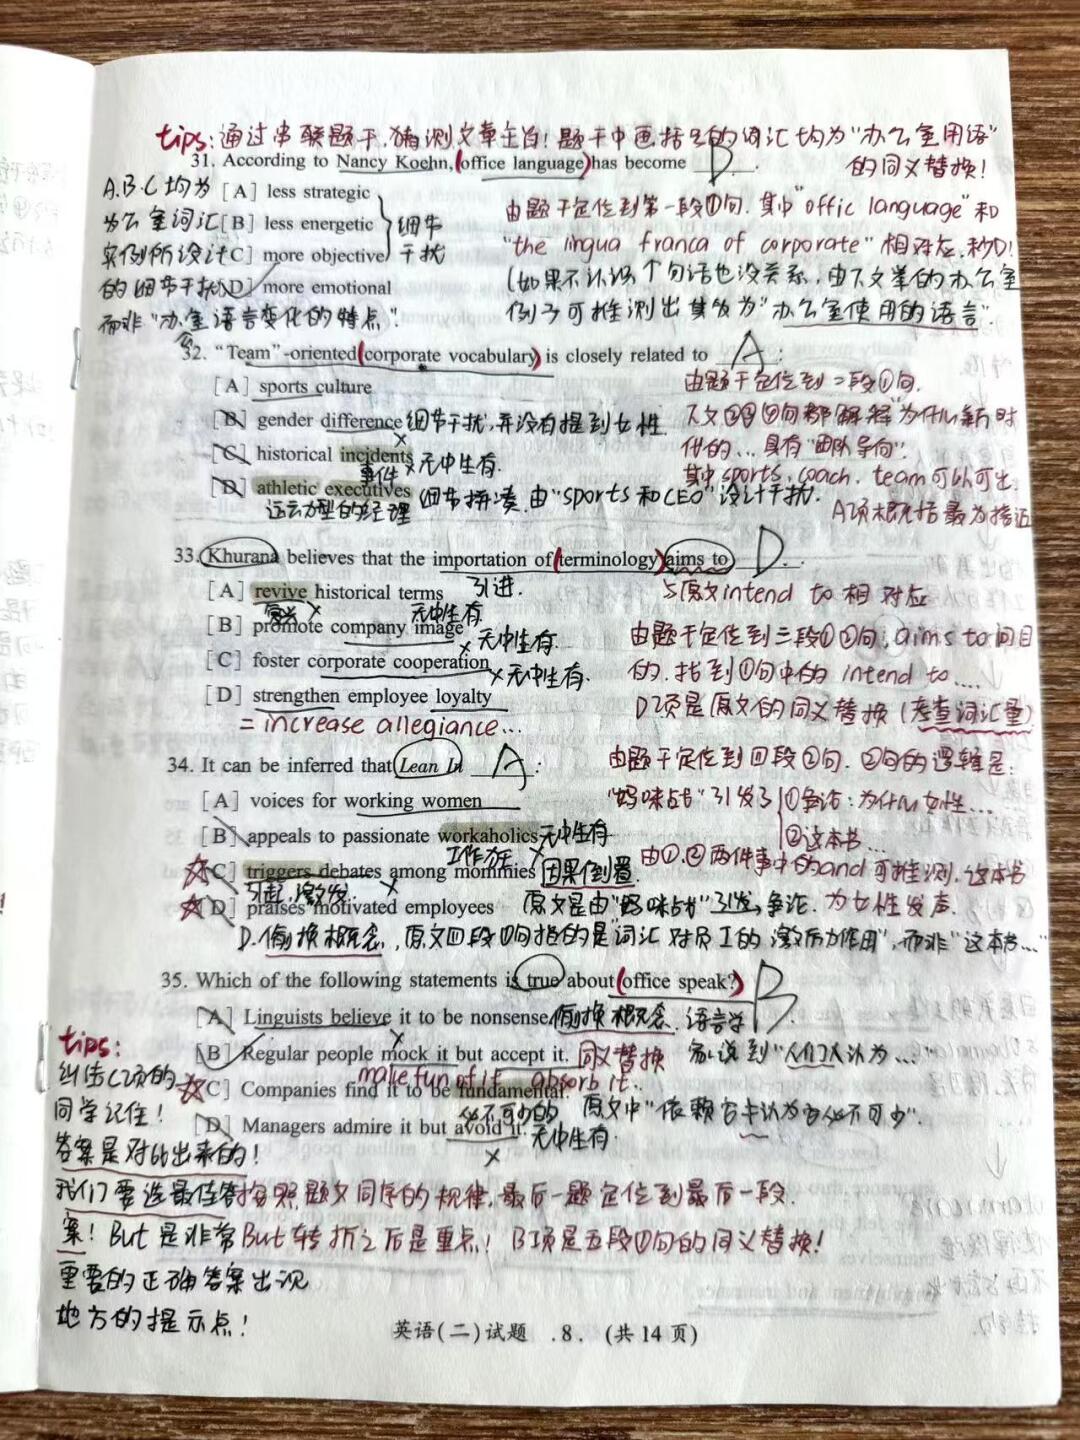 tips: 通过串联题干,猜测文章主旨!题干中画括号的词汇均为"办公室用语"
的同义替换!
31. According to Nancy Koehn, (office language) has become D.
A.B.C均为 [A] less strategic
办公室词汇 [B] less energetic 细节
实例所设计 [C] more objective 干扰
的细节干扰 [D] more emotional
而非"办公室语言变化的特点".
由题干定位到第一段①句.其中"offic language"和
"the lingua franca of corporate"相对应.秒D!
(如果不认识个句话也没关系,由下文举的办公室
例子可推测出其故为"办公室使用的语言".
32. "Team"-oriented (corporate vocabulary) is closely related to A:
[A] sports culture
[B] gender difference 细节干扰,并没有提到女性.
[C] historical incidents ×无中生有.
事件
[D] athletic executives 细节拼凑.由"sports和CEO"设计干扰.
运动型的经理
由题干定位到二段①句.
下文②③④句都解释"为什么新时
代的...具有"团队导向".
其中sports、coach、team可以可出.
A项概括最为接近
33. Khurana believes that the importation of (terminology) aims to D.
引进.
[A] revive historical terms
复兴 × 无中生有
[B] promote company image ×无中生有.
[C] foster corporate cooperation ×无中生有.
[D] strengthen employee loyalty
= increase allegiance...
与原文intend to相对应
由题干定位到三段①②句,aims to问目
的.找到①句中的intend to....
D项是原文的同义替换(考查词汇量)
34. It can be inferred that Lean In A:
[A] voices for working women
[B] appeals to passionate workaholics 无中生有
工作狂 ×
[C] triggers debates among mommies 因果倒置.
引起,激发. ×
[D] praises motivated employees 原文是由"妈味战"引发争论.
D.偷换概念,原文四段①句指的是"词汇对员工的激励作用",而非"这本书..."
由题干定位到四段②句.②句的逻辑是:
"妈咪战"引发了 ①争论:为什么女性...
②这本书...
由①.②两件事中的and可推测,这本书
为女性发声.
35. Which of the following statements is true about (office speak?) B
[A] Linguists believe it to be nonsense. 偷换概念.语言学
家,说到"人们认为..."
[B] Regular people mock it but accept it. 同义替换
make fun of it absorb it..
[C] Companies find it to be fundamental.
必不可少的 原文中"依赖它≠认为它必不可少".
[D] Managers admire it but avoid it. 无中生有.
×
tips:
纠结C项的
同学记住!
答案是对比出来的!
我们要选最佳答
案!But是非常
重要的正确答案出现
地方的提示点!
按照题文同序的规律,最后一题定位到最后一段.
But转折之后是重点!B项是五段①句的同义替换!
英语(二)试题 .8. (共14页)